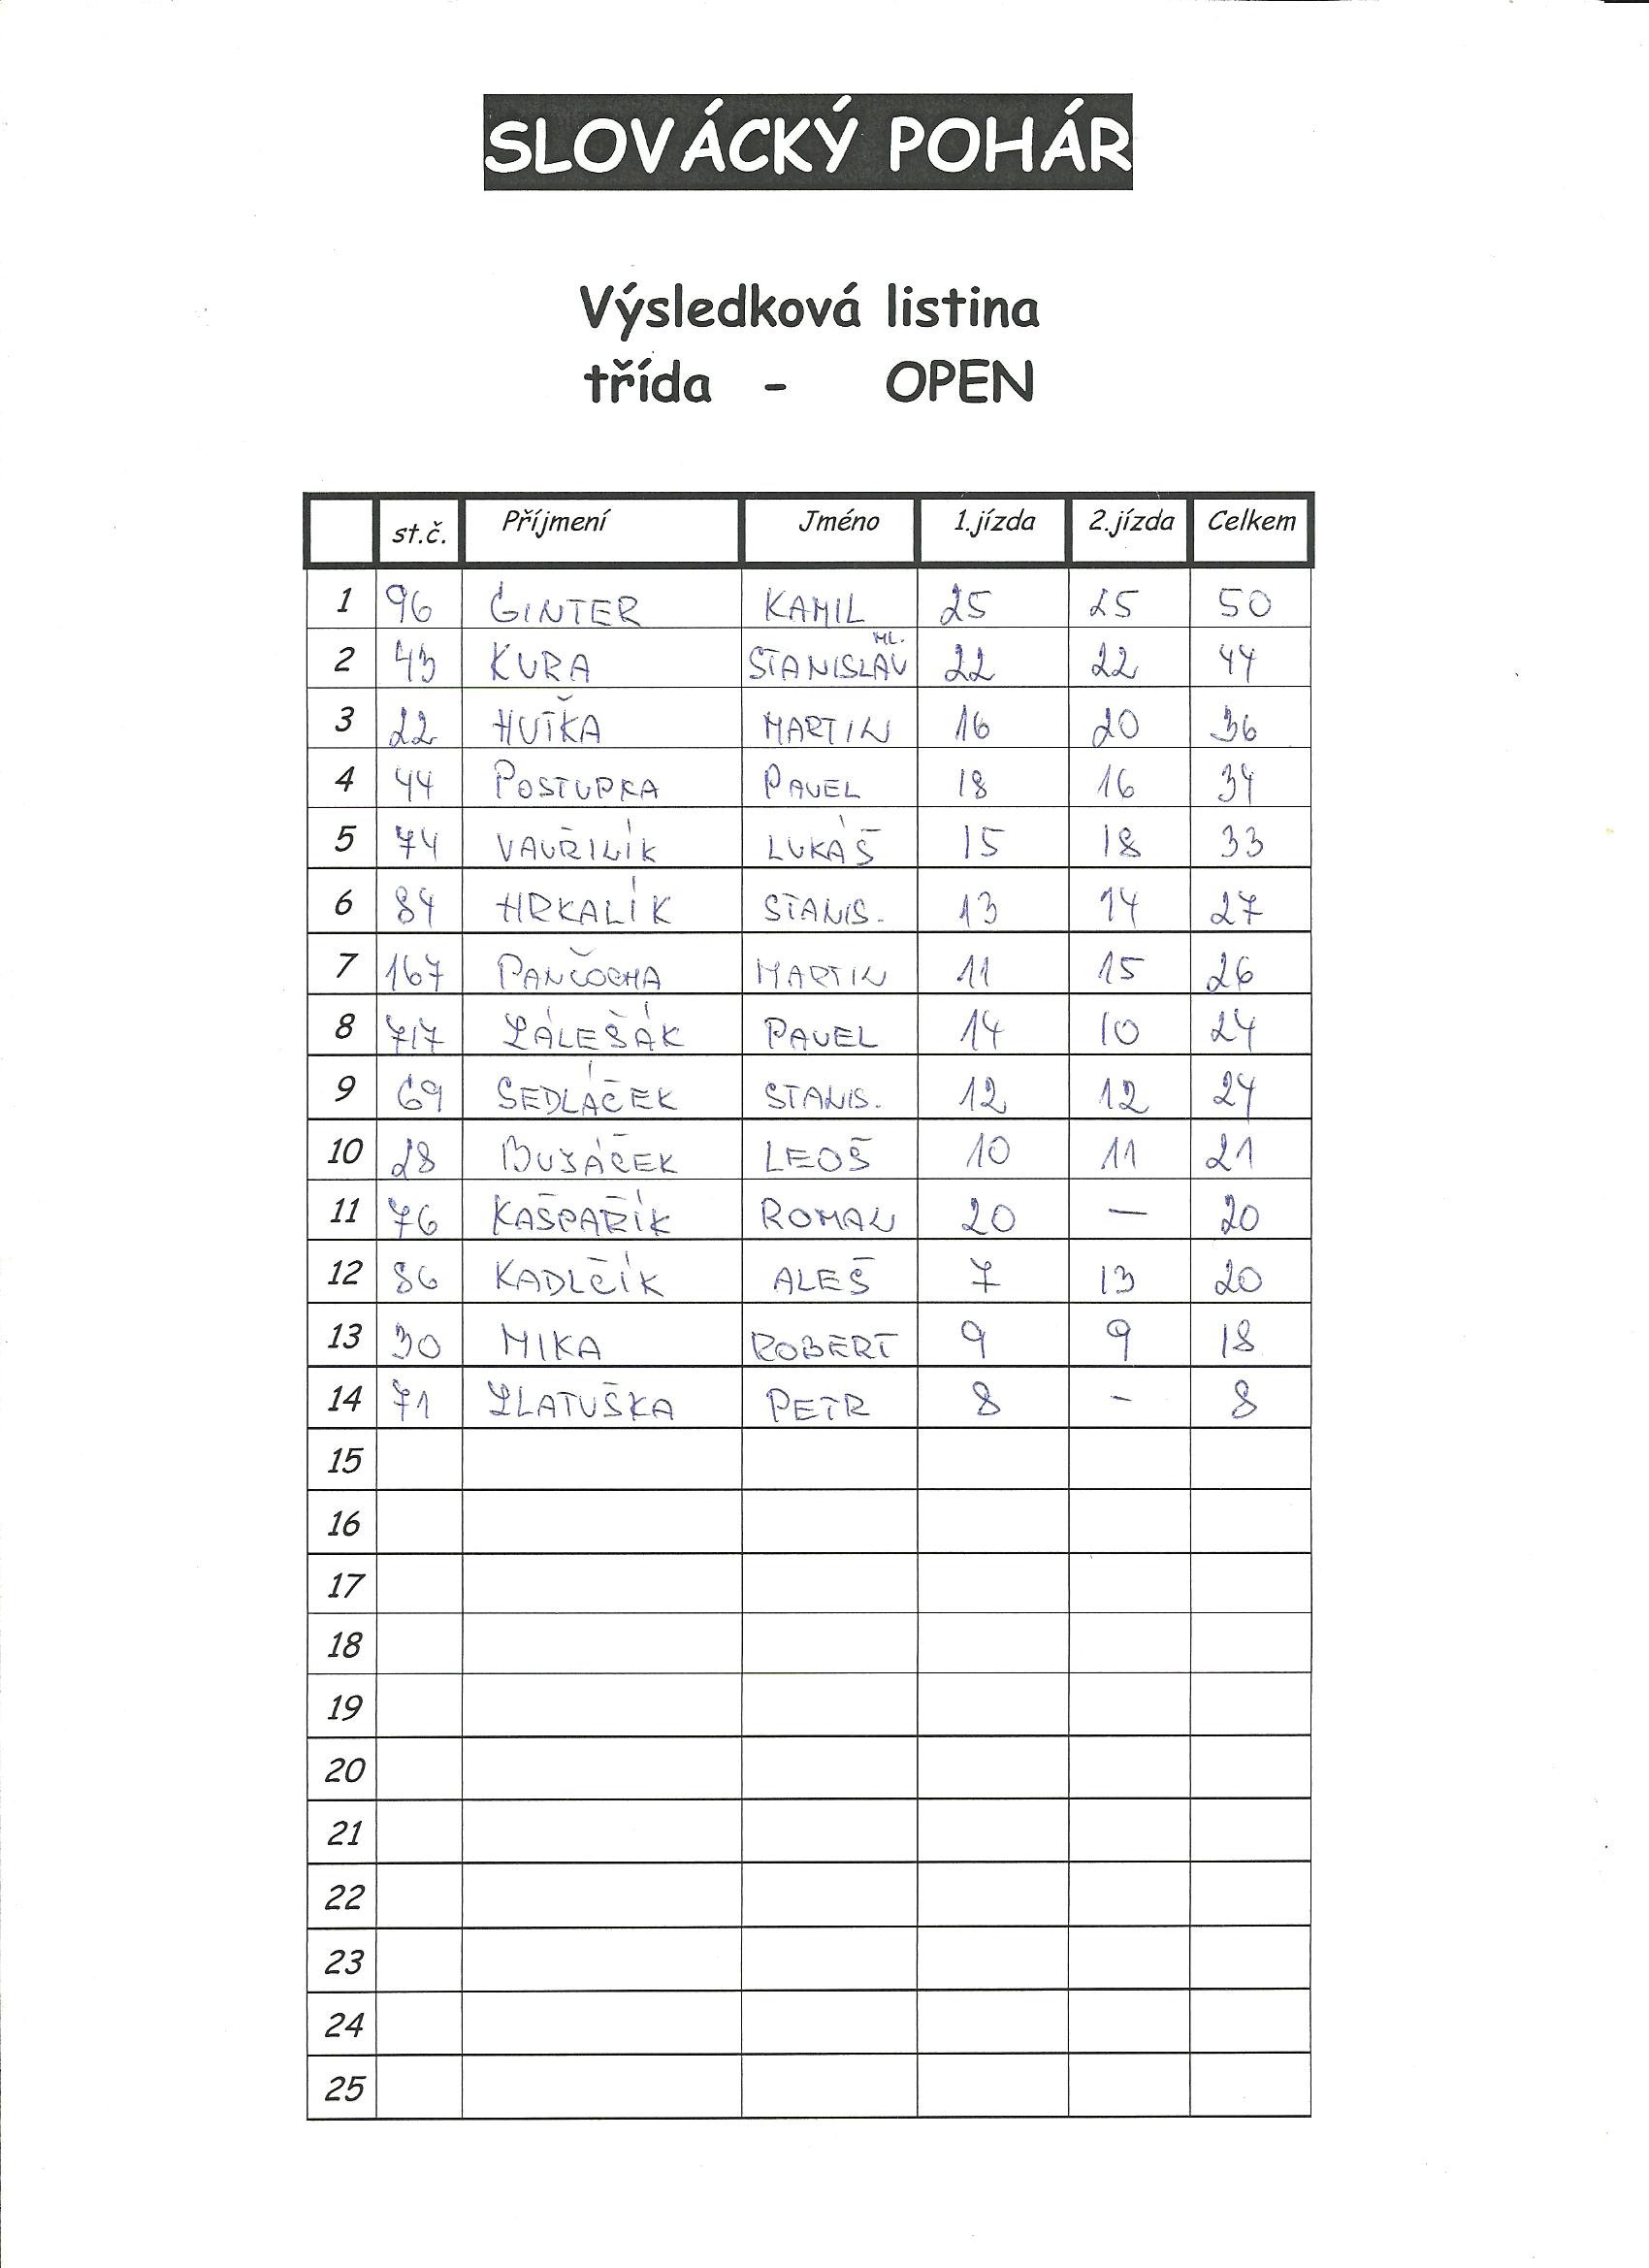 SLOVÁCKÝ POHÁR
Výsledková listina
třída - OPEN
st.č. Příjmení Jméno 1.jízda 2.jízda Celkem
1 96 GINTER KAMIL 25 25 50
2 43 KURA STANISLAV ML. 22 22 44
3 22 HUŤKA MARTIN 16 20 36
4 44 POSTUPKA PAVEL 18 16 34
5 74 VAVŘINÍK LUKÁŠ 15 18 33
6 84 HRKALÍK STANIS. 13 14 27
7 167 PANČOCHA MARTIN 11 15 26
8 717 ZÁLEŠÁK PAVEL 14 10 24
9 69 SEDLÁČEK STANIS. 12 12 24
10 28 LEOŠ 10 11 21
11 76 KAŠPAŘÍK ROMAN 20 — 20
12 86 KADLČÍK ALEŠ 7 13 20
13 30 MIKA ROBERT 9 9 18
14 71 ZLATUŠKA PETR 8 - 8
15
16
17
18
19
20
21
22
23
24
25